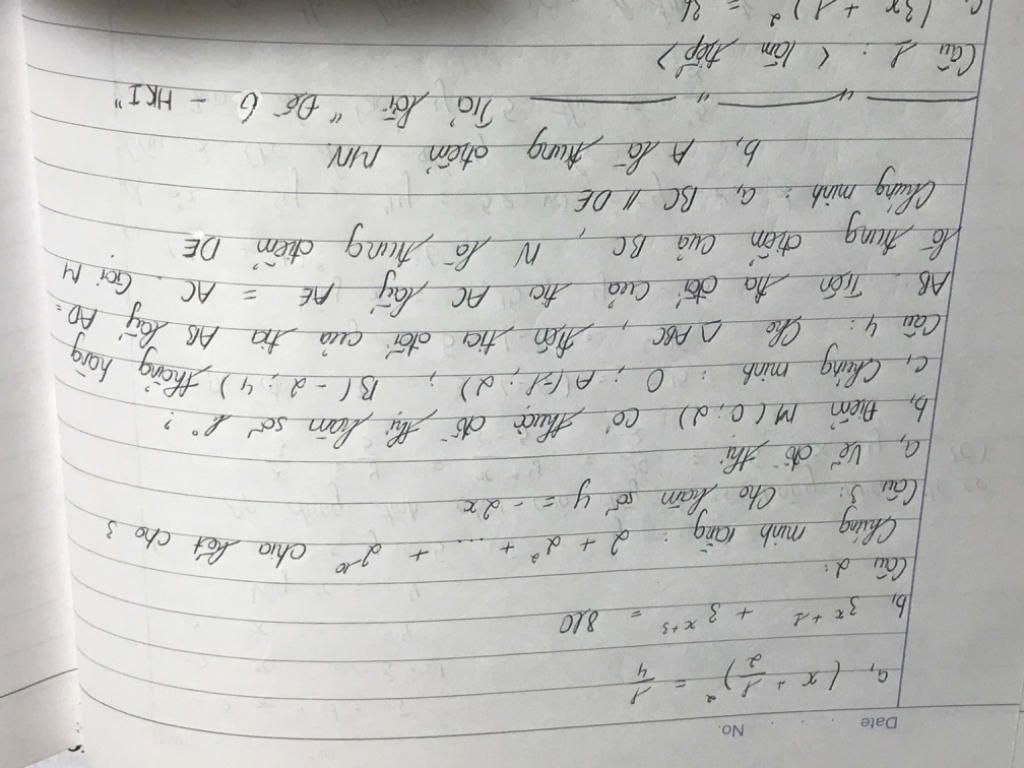 Date No.
a, (x + 1/2)² = 1/4
b, 3^(x+1) + 3^(x+3) = 810
Câu 2:
Chứng minh rằng: 2 + 2² + ... + 2¹⁰ chia hết cho 3
Câu 3: Cho hàm số y = -2x
a, Vẽ đồ thị
b, Điểm M(0;2) có thuộc đồ thị hàm số k°?
c, Chứng minh: O; A(-1;2); B(-2;4) thẳng hàng
Câu 4: Cho △ABC, trên tia đối của tia AB lấy AD =
AB. Trên tia đối của tia AC lấy AE = AC. Gọi M
là trung điểm của BC, N là trung điểm DE
Chứng minh: a, BC // DE
b, A là trung điểm MN.
Trả lời "Đề 6 - HKI"
Câu 1: < làm tiếp >
c, (3x + 1)² = 36